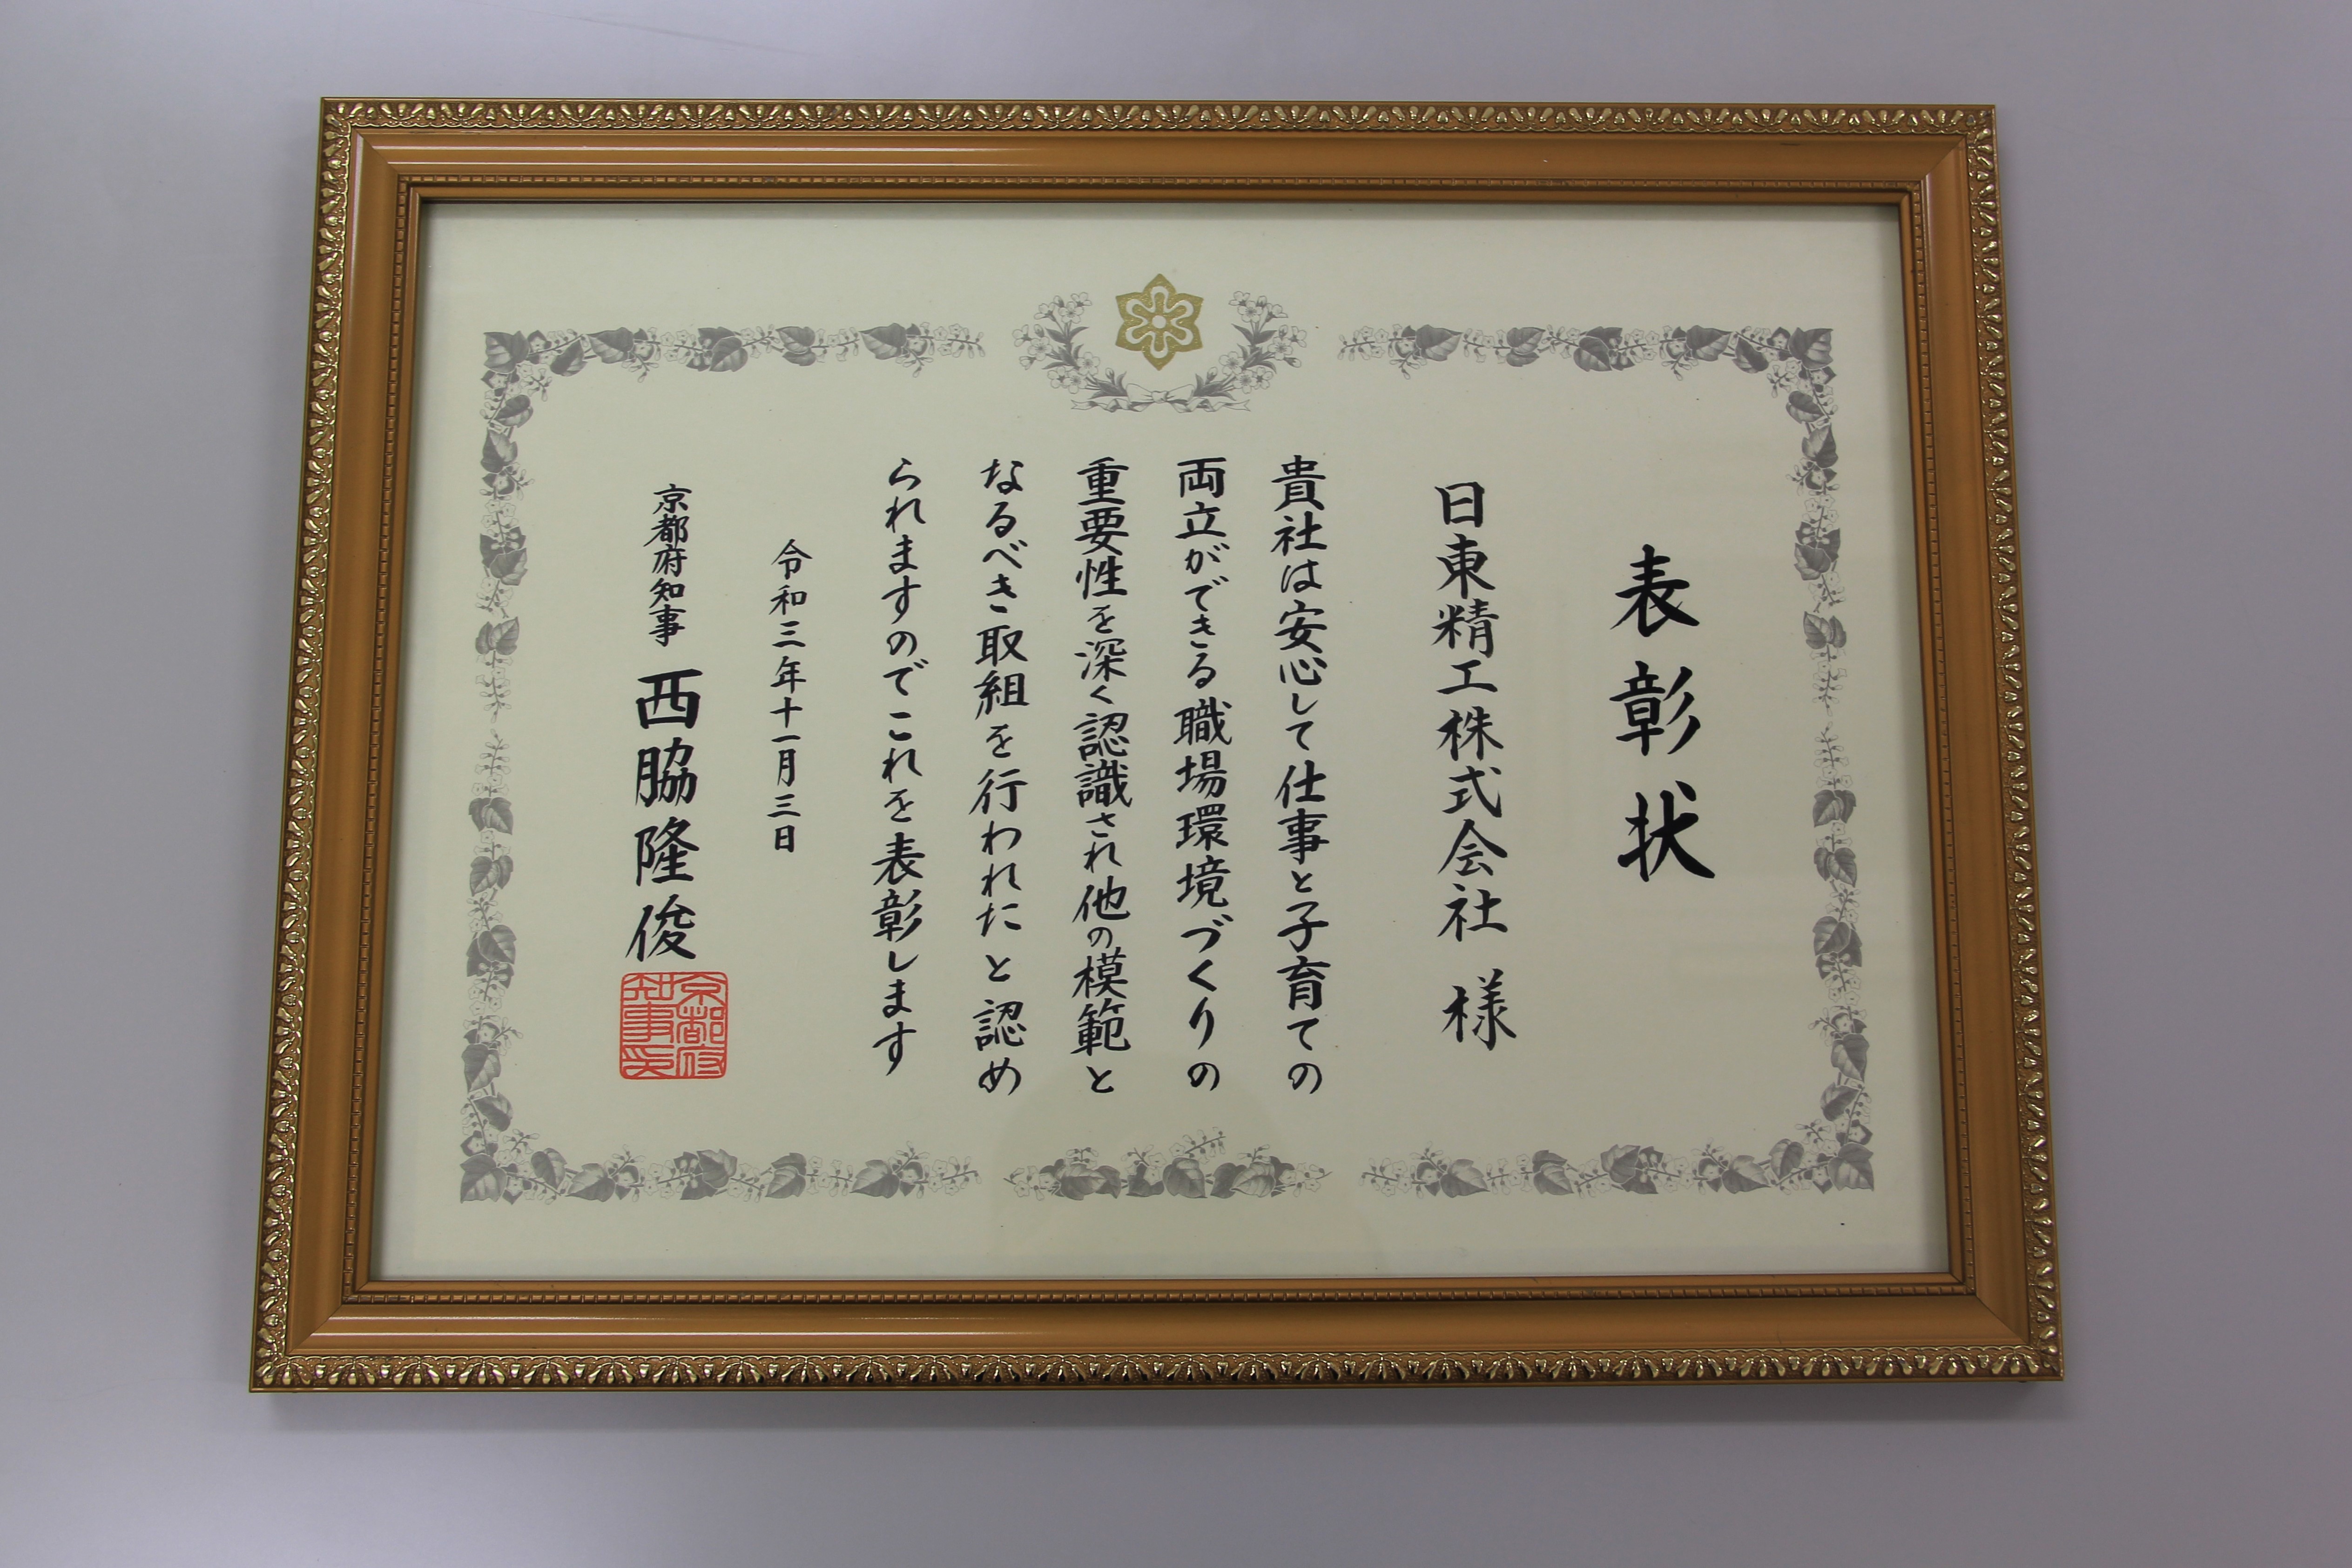 表彰状
日東精工株式会社 様
貴社は安心して仕事と子育ての
両立ができる職場環境づくりの
重要性を深く認識され他の模範と
なるべき取組を行われたと認め
られますのでこれを表彰します
令和三年十一月三日
京都府知事 西脇隆俊
京都府
知事印